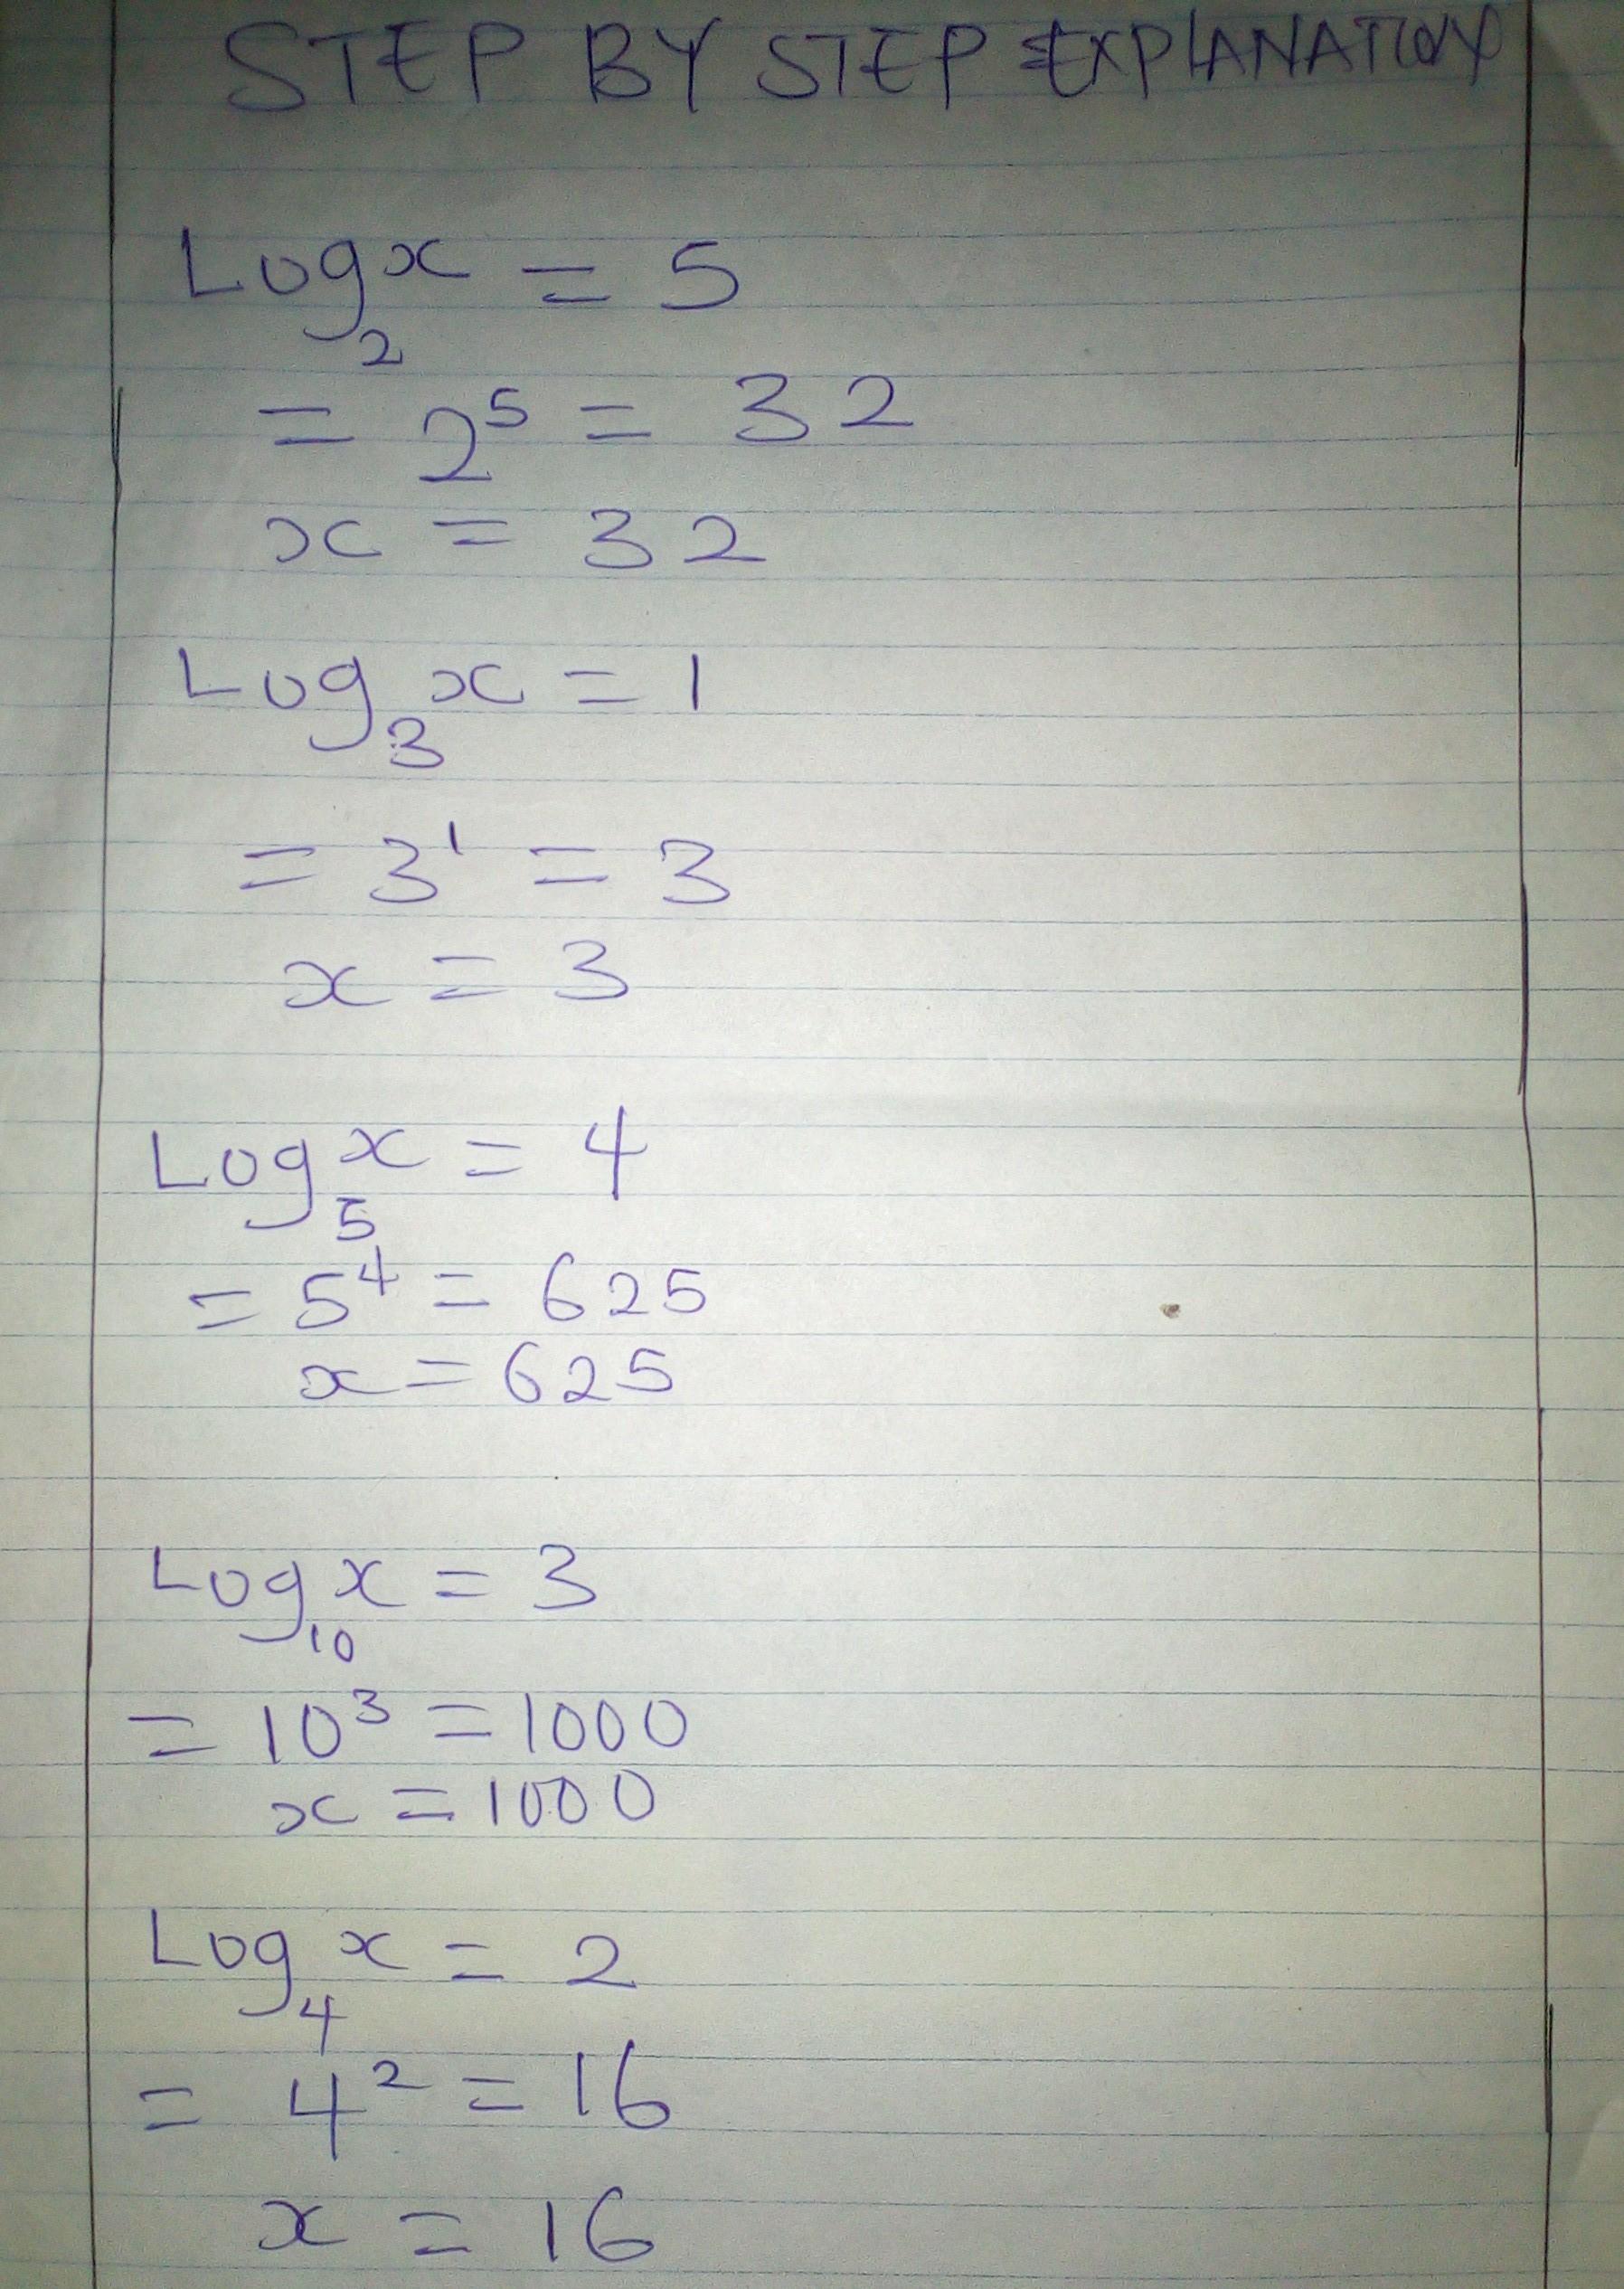 STEP BY STEP EXPLANATION
Log₂x = 5
= 2⁵ = 32
x = 32
Log₃x = 1
= 3¹ = 3
x = 3
Log₅x = 4
= 5⁴ = 625
x = 625
Log₁₀x = 3
= 10³ = 1000
x = 1000
Log₄x = 2
= 4² = 16
x = 16